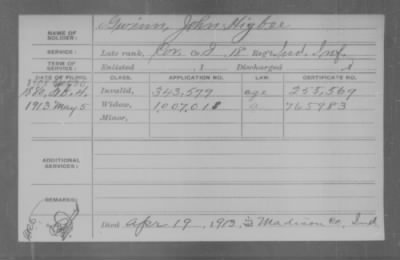 NAME OF SOLDIER: Gwinn, John Higbee
SERVICE: Late rank, Co. I, 18 Reg't Ind. Inf.
TERM OF SERVICE: Enlisted , 1 Discharged , 1
DATE OF FILING. CLASS. APPLICATION NO. LAW. CERTIFICATE NO.
1880, Invalid, 343,577 age 255,569
1913 May 5 Widow, 1,007,018 765983
Minor,
ADDITIONAL SERVICES:
REMARKS:
Died Apr 19, 1913, Madison Co, Ind